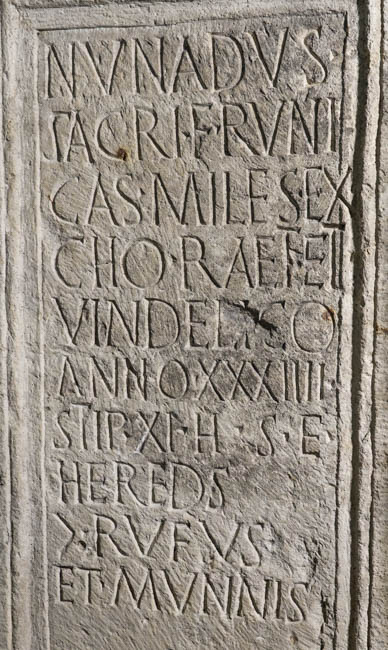 NVNADVS
SACRI·F·RVNI
CAS·MILES·EX
CHO·RAET·ET
VINDELICO
ANNO·XXXIIII
STIP·XI·H·S·E
HEREDS
X·RVFVS
ET·MVNNIS